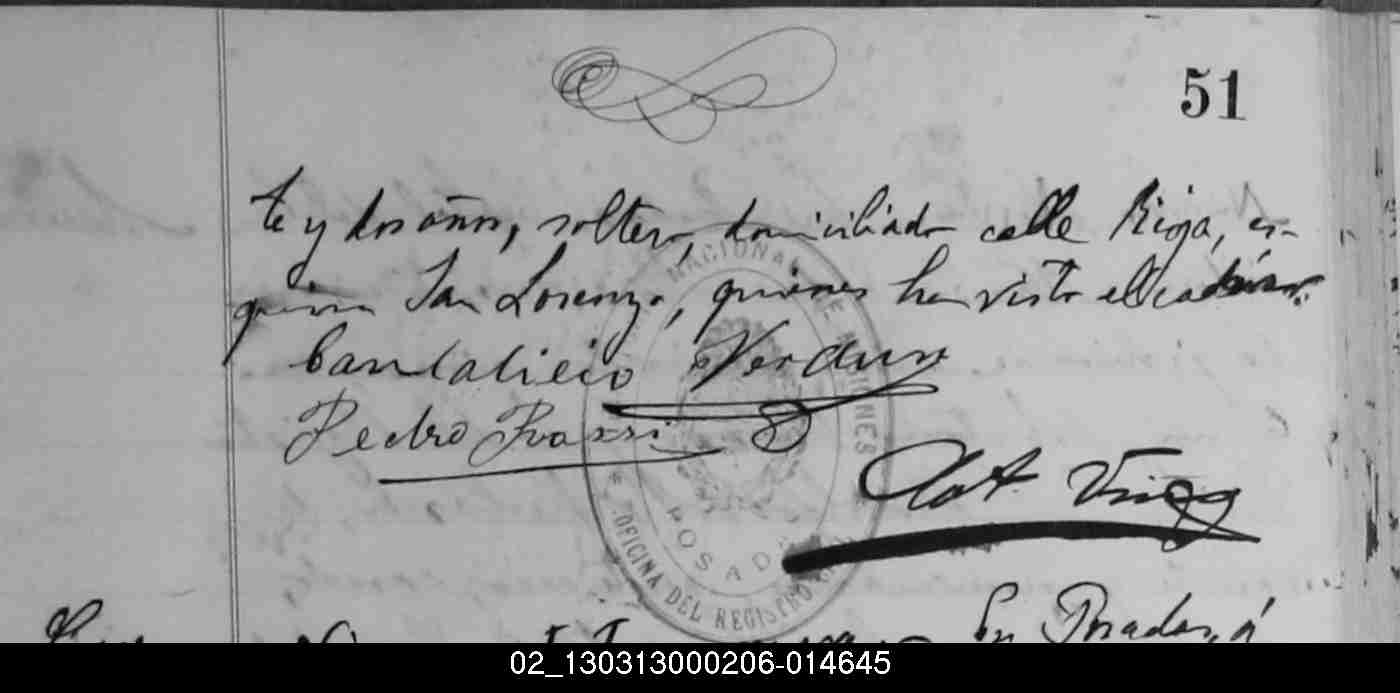 51
te y dos años, soltero, domiciliado calle Rioja, es-
quina San Lorenzo, quienes han visto el cadáver.
Cantalicio Verdun
Pedro Rossi
NACIONAL DE MISIONES
POSADAS
OFICINA DEL REGISTRO
En Posadas, á
02_130313000206-014645